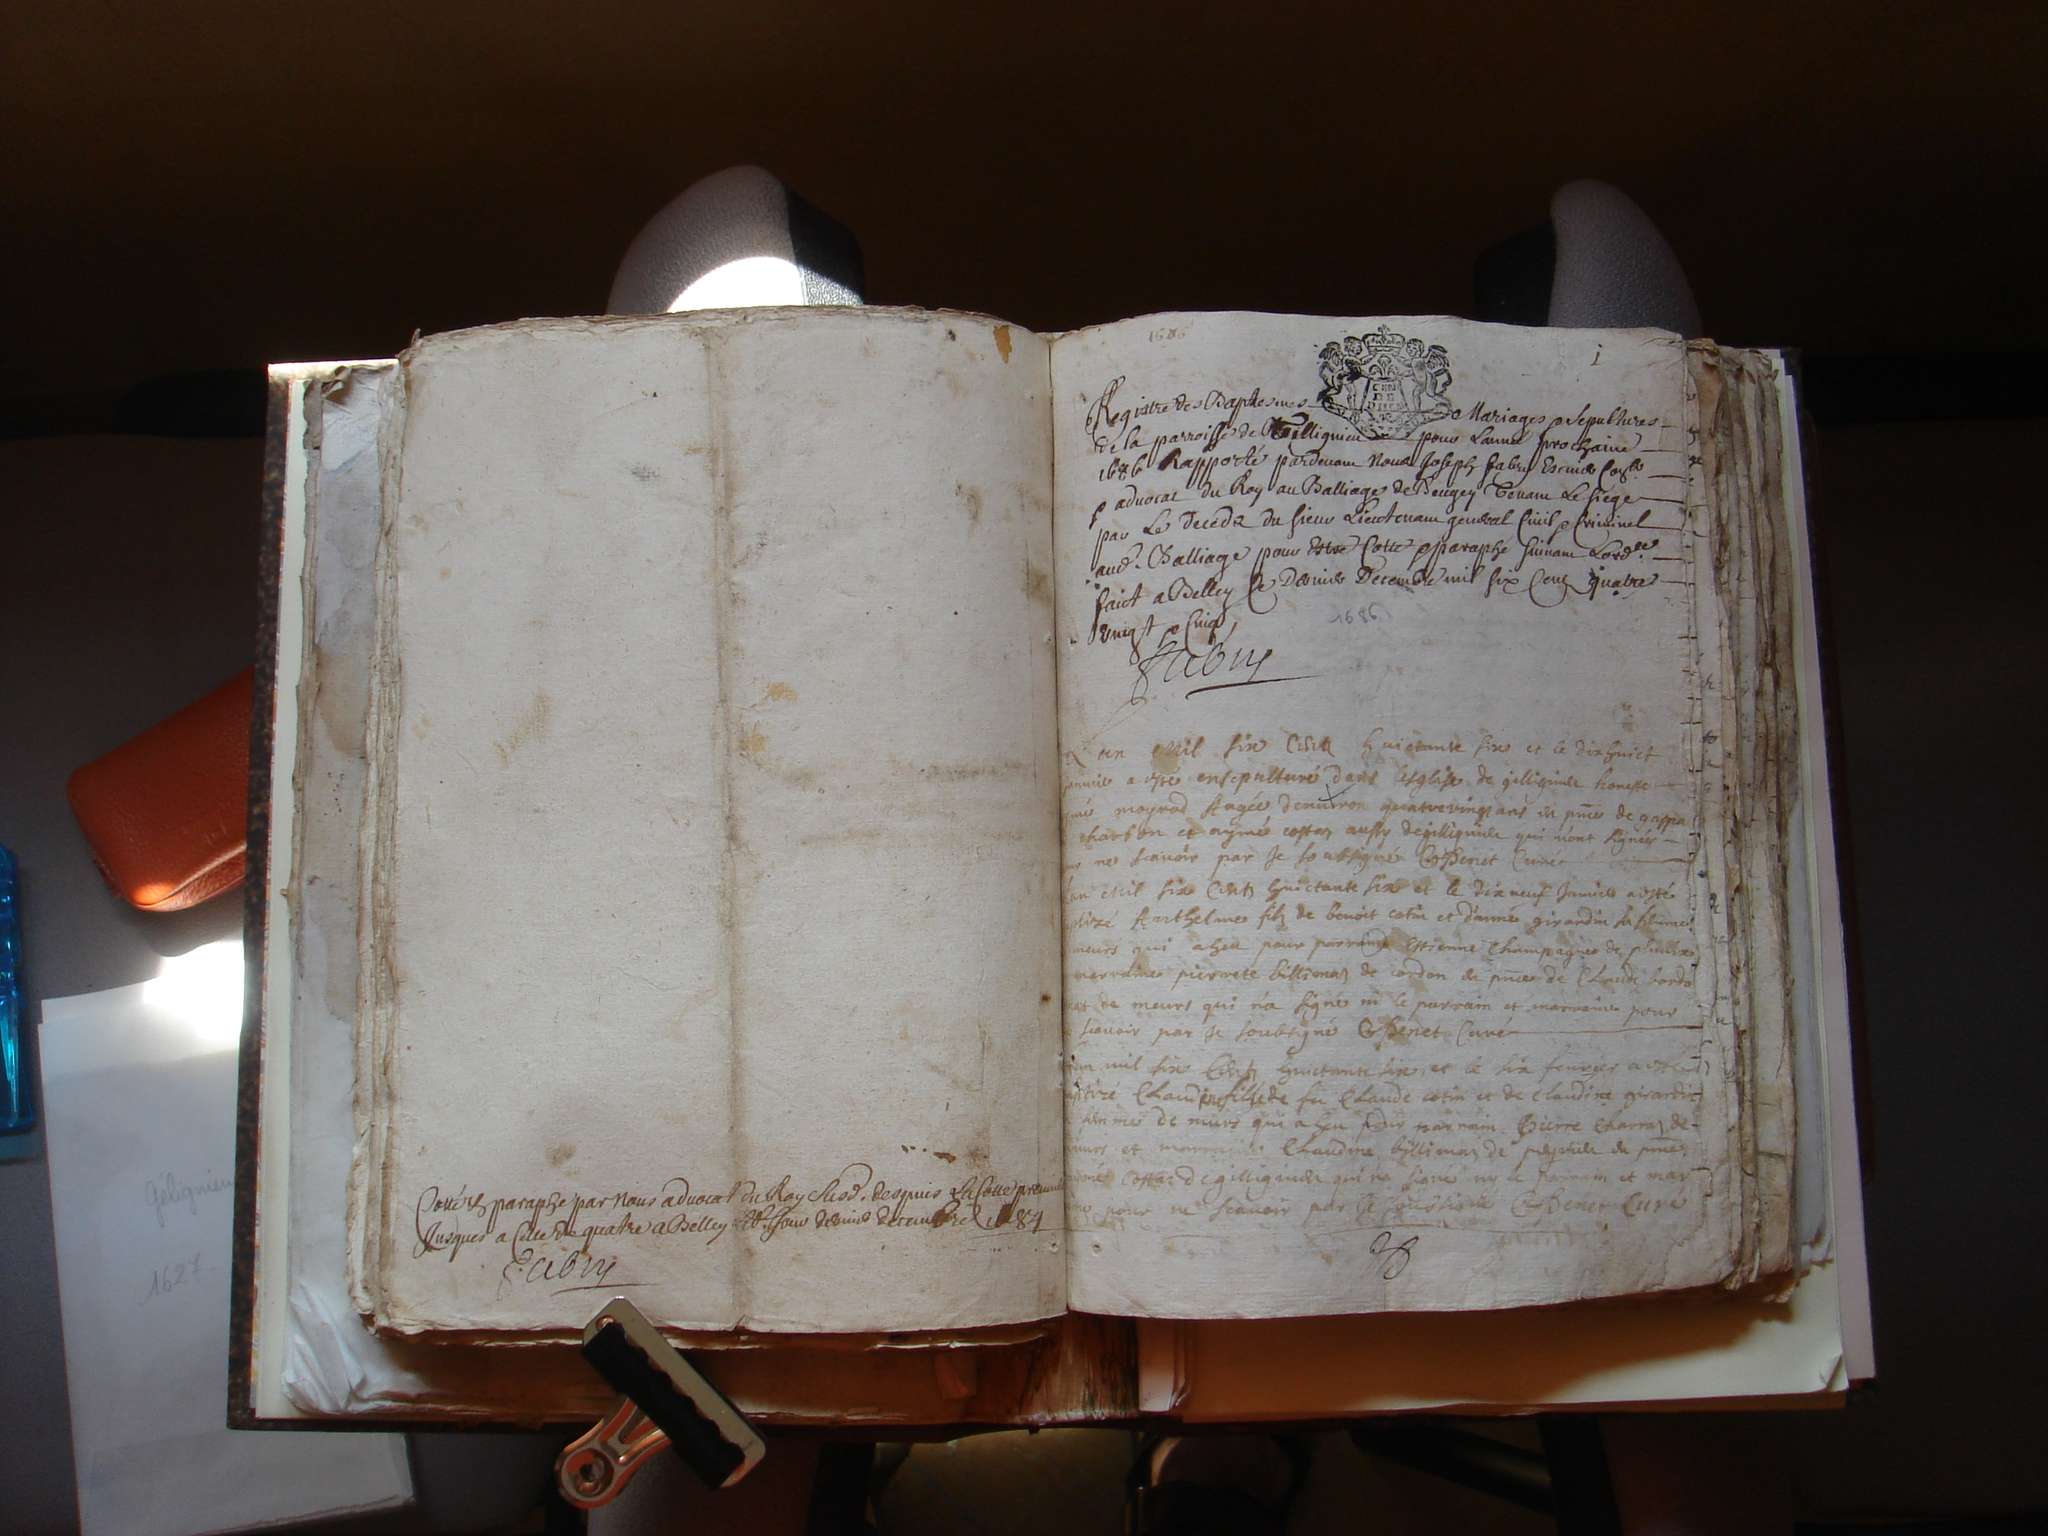 Cotté & paraphé par Nous advocat du Roy Susd. despuis La Cotte premiere
Jusques a Celle de quatre a Belley ce Jour dernier decembre
Fabry
1686
i
Registre des Baptesmes Mariages & Sepultures
de la parroisse de Gillignieu pour Lannee prochaine
1686 Rapporté pardevant Nous Joseph Fabry Escuier
& advocat du Roy au Balliage de Beugey Tenant Le Siege
par Le Decedz du sieur Lieutenant general Civil & Criminel
aud. Balliage pour estre Cotté & paraphé suivant Lord.ce
faict a Belley le dernier Decembre mil six Cent quatre
vingt & Cinq
1686
Fabry
L an Mil six Cent huictante six et le dixhuict
a esté ensepulturé dans lesglise de gillignieu honeste
aagée denviron quatrevingt ans en pnce de gaspa
charbon et aymé cottaz aussy de gilligneu qui n'ont signés
ne scavoir par Je soubsigné Benet Curé
an Mil six Cent huictante six et le dix neuf Janvier a esté
Barthelmé filz de benoit cotin et d'anne girardin sa femme
meurs qui a heu pour parrain Estienne Champagne de
marraine pierrete billiemaz de cordon en pnce de Claude
de meurs qui n'a signé ni le parrain et marraine pour
scavoir par Je soubsigné Benet Curé
mil six Cent huictante six et le six fevrier a esté
Claudine fille de fu Claude cotin et de claudine girardin
de murs qui a heu pour parrain Pierre Charraz de
meurs et marraine Claudine billiemaz de en pnce
cottaz de gilligneu qui n'a signé ny le parrain et mar
pour ne scavoir par Je soubsigné Benet Curé
Gélignieu
1627